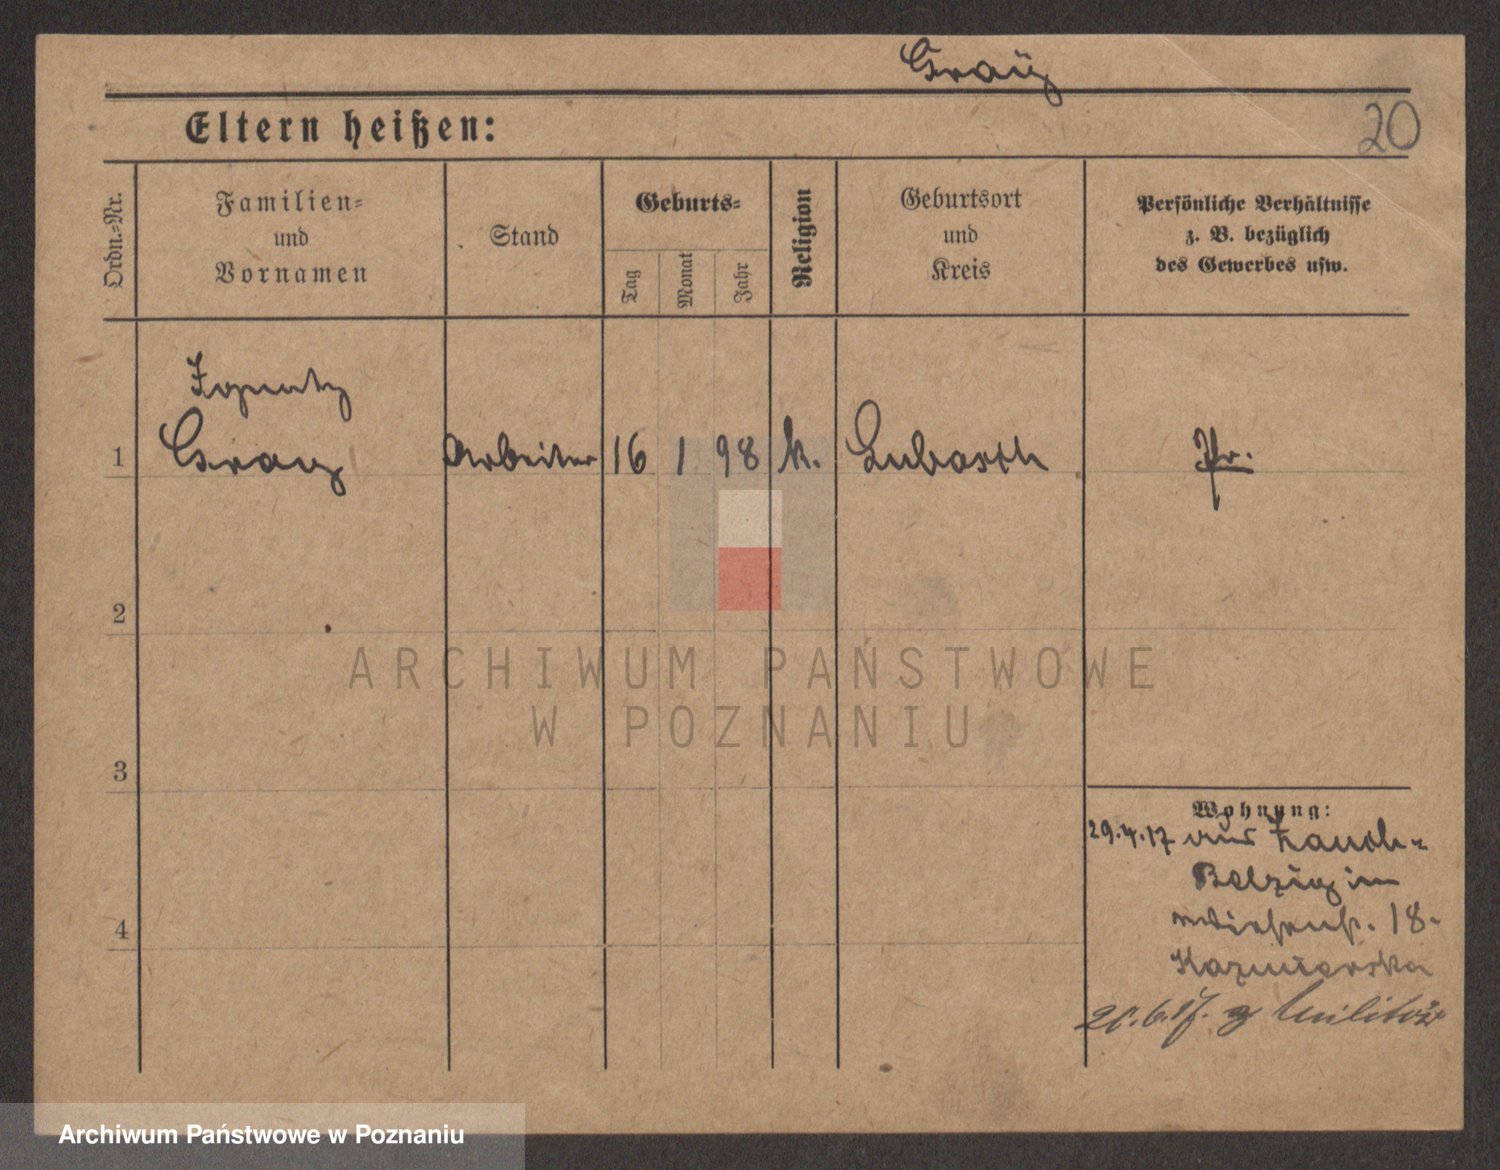 Graÿ
20
Eltern heißen:
Ordn.-Nr.
Familien-
und
Vornamen
Stand
Geburts-
Tag
Monat
Jahr
Religion
Geburtsort
und
Kreis
Persönliche Verhältnisse
z. B. bezüglich
des Gewerbes usw.
Ignatz
1 Gray Arbeiter 16 1 98 k. Lubasch Pr.
2
3
4
Wohnung:
29.4.17 aus Zauch-
Belzig in
18.
Kazmierska
20.6.17. z Militär
ARCHIWUM PAŃSTWOWE
W POZNANIU
Archiwum Państwowe w Poznaniu